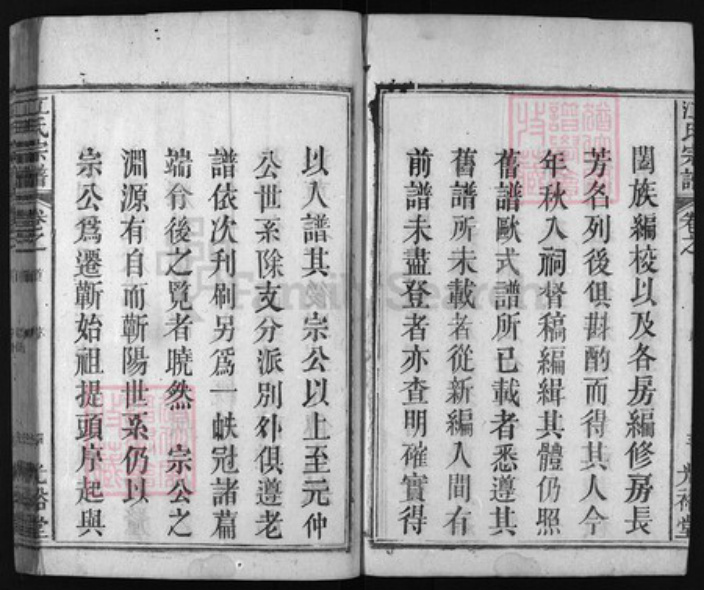 闔族編校以及各房編修房長
芳名列後俱斟酌而得其人今
年秋入祠督稿編緝其體仍照
舊譜歐式譜所已載者悉遵其
舊譜所未載者從新編入間有
前譜未盡登者亦查明確實得
以入譜其 宗公以上至元仲
公世系除支分派別外俱遵老
譜依次刋刷另爲一帙冠諸篇
端令後之覧者曉然 宗公之
淵源有自而靳陽世系仍以
宗公爲遷靳始祖提頭序起與
江氏宗譜
卷之
光裕堂
江氏宗譜
卷之一
光裕堂
FamilySearch